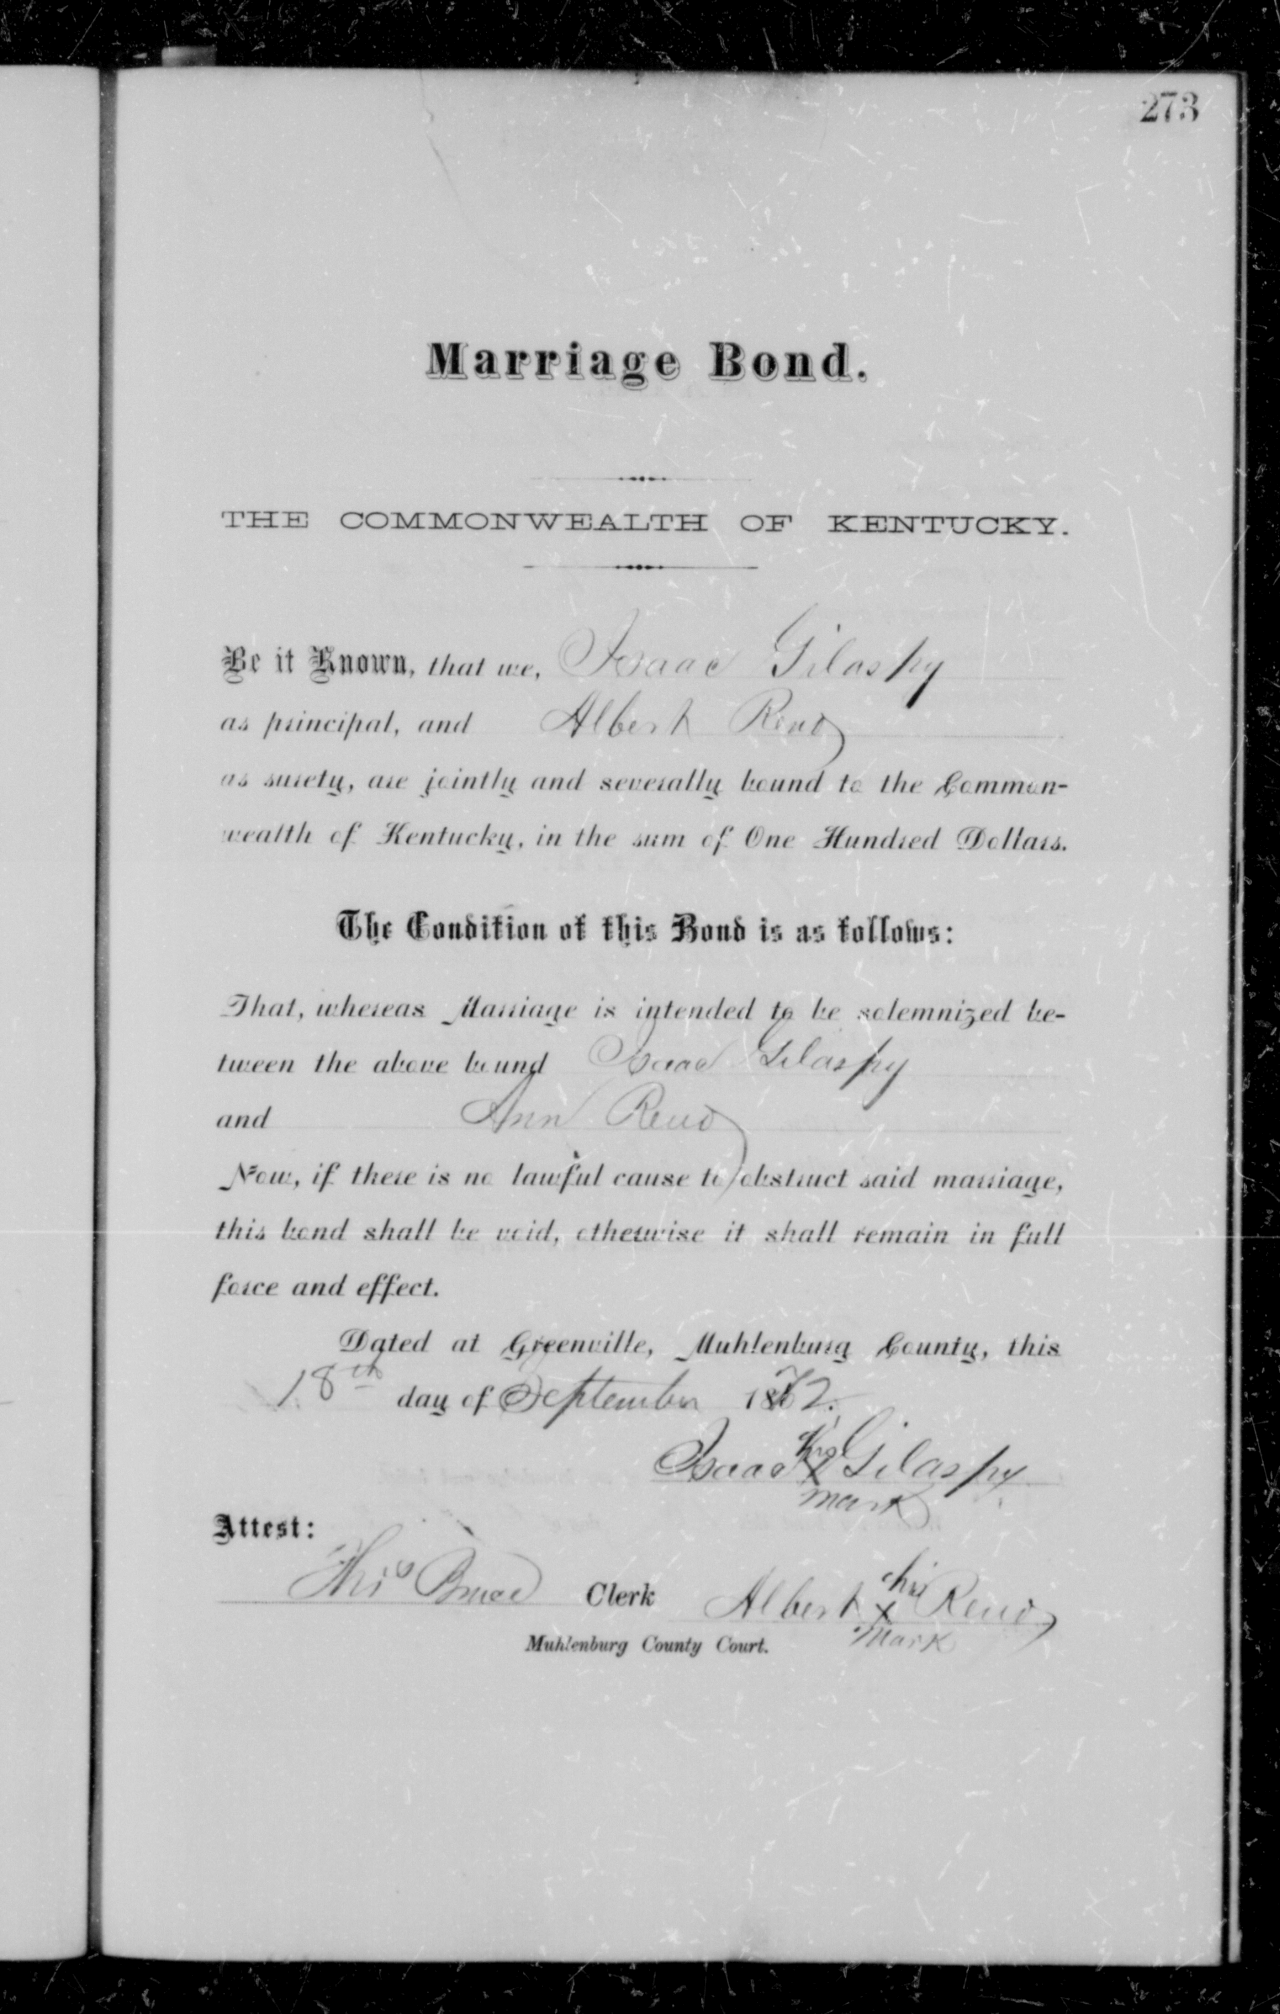 273
Marriage Bond.
THE COMMONWEALTH OF KENTUCKY.
Be it Known, that we, Isaac Gilaspy
as principal, and Albert Reno
as surety, are jointly and severally bound to the Common-
wealth of Kentucky, in the sum of One Hundred Dollars.
The Condition of this Bond is as follows:
That, whereas Marriage is intended to be solemnized be-
tween the above bound Isaac Gilaspy
and Ann Reno
Now, if there is no lawful cause to obstruct said marriage,
this bond shall be void, otherwise it shall remain in full
force and effect.
Dated at Greenville, Muhlenburg County, this
18th day of September 1872.
Isaac his X mark Gilaspy
Attest:
Thos Bruce Clerk Albert his X mark Reno
Muhlenburg County Court.